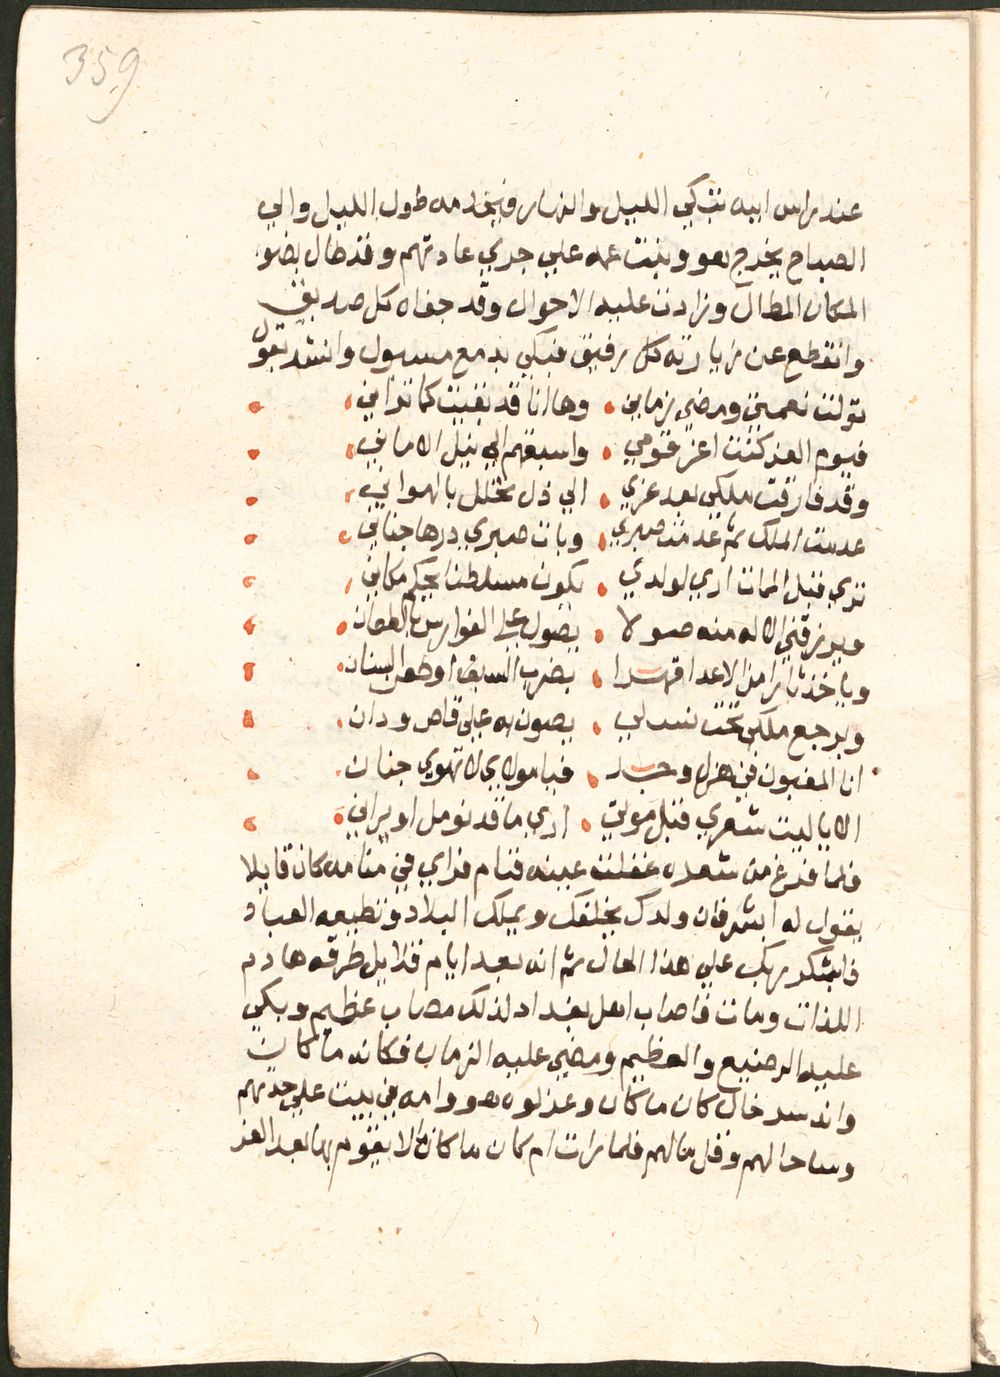 359
عند راس ابيه تبكي الليل والنهار في خدمه طول الليل والي
الصباح يخرج هو وبنت عمه علي جري عادتهم وقد طال بضو
المكان المطال وزادت عليه الاحوال وقد جفاه كل صديق
وانقطع عن زيارته كل رفيق فبكي بدمع مسبول وانشد يقول
تولت نعمتي ومضي زماني • وها انا قد بقيت كما تراني
فيوم العز كنت اعز قومي • واسبقهم الي نيل الاماني
وقد فارقت ملكي بعد عزي • الي ذل تخلل بالهواني
عدمت الملك ثم عدمت صبري • وبات صبري درها جناني
تري قبل الممات اري لولدي • يكون مسلطنا يحكم مكاني
ويرزقني الاله منه صولا • يصول علي الفوارس بالطعان
وياخذ ثارا من الاعدا قهرا • بضرب السيف او طعن السنان
ويرجع ملكي تحت نسلي • يصونه علي قاص ودان
انا المغبون في هزل وجد • فيا مولاي لا تهوي جنان
الا يا ليت شعري قبل موتي • اري ما قد نومل او يراني
فلما فرغ من شعره غفلت عينه فنام فراي في منامه كان قايلا
يقول له ابشر فان ولدك يخلفك ويملك البلاد وتطيعه العباد
علي هذا الحال ثم انه بعد ايام قلايل طرقه هادم
اللذات ومات فاصاب اهل بغداد لذلك مصاب عظيم وبكي
عليه الرضيع والعظيم ومضي عليه الزمان فكانه ما كان
حال كان ما كان وعزلوه هو وامه في بيت علي حدتهم
وساحالهم وقل مالهم فلما رات ام كان ما كان الا يقوم بها بعد العز